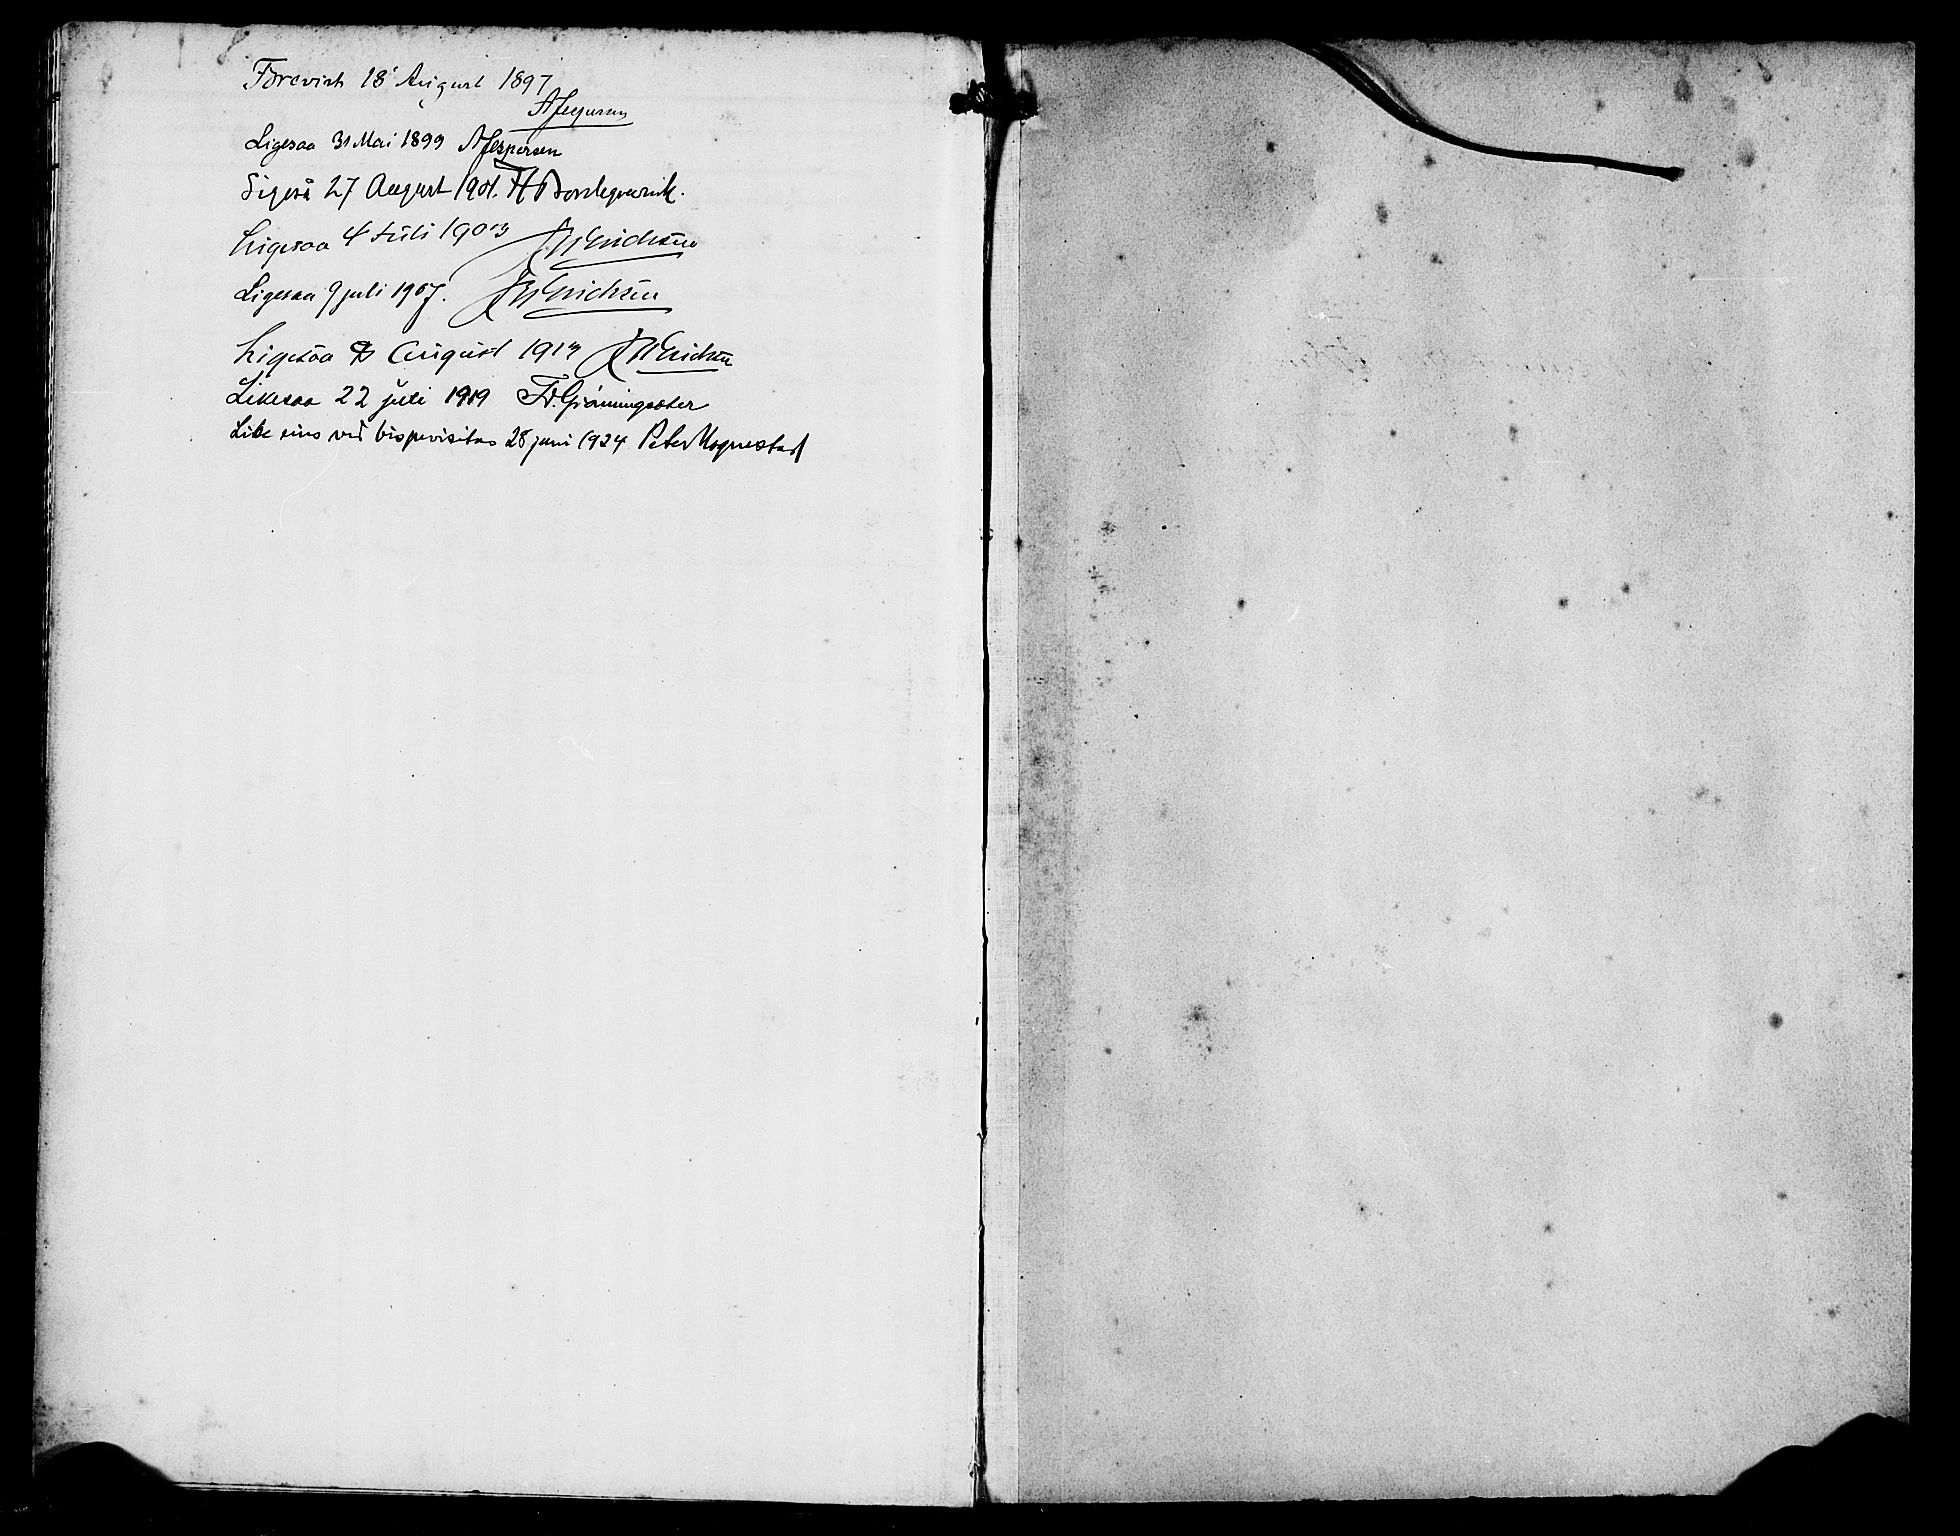 Forevist 18' August 1897
AJespersen
Ligesaa 31 Mai 1899 AJespersen
Ligeså 27 August 1901.
Ligesaa 4 Juli 1903 Erichsen
Ligesaa 9 juli 1907. Erichsen
Ligesaa August 1913 Erichsen
Likesaa 22 juli 1919 Fr. Grønningsæter
Like eins ved bispevisitas 28 juni 1924 Peter Hognestad